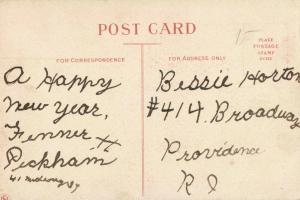 POST CARD
FOR CORRESPONDENCE
FOR ADDRESS ONLY
PLACE
POSTAGE
STAMP
HERE
A Happy
New Year,
Fenner H
Peckham
Bessie Horton
#414. Broadway
Providence
R I